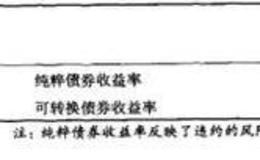 纯粹债券收益率
可转换债券收益率
注：纯粹债券收益率反映了违约的风